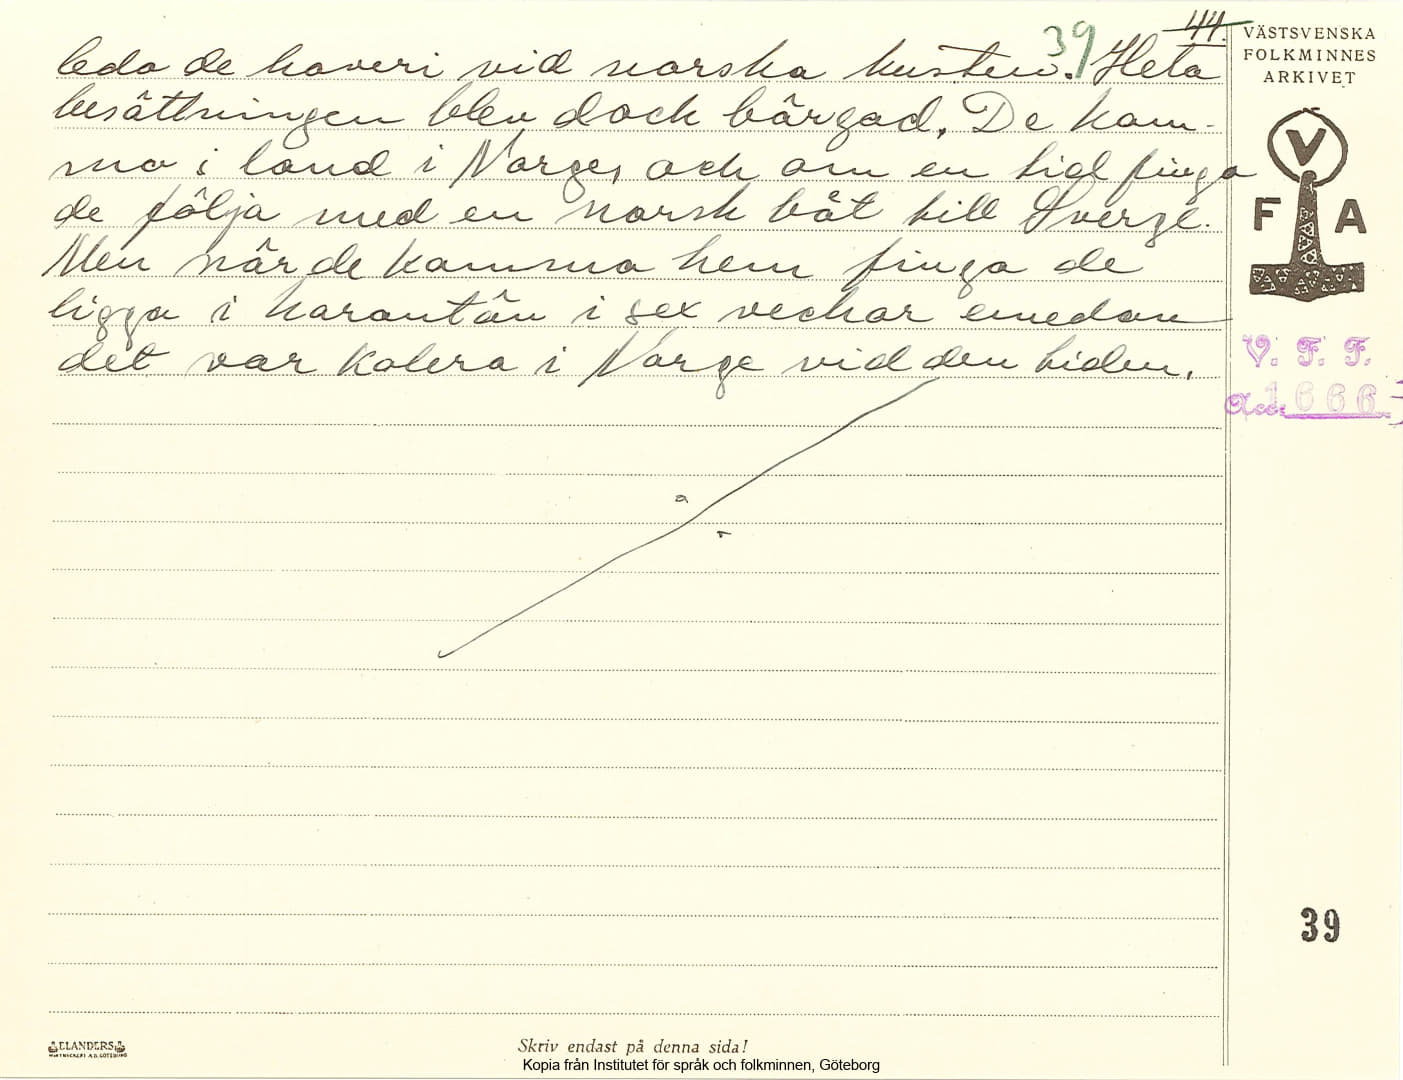 44.
39
leda de haveri vid norska kusten. Hela
besättningen blev dock bärgad. De kom-
mo i land i Norge, och om en tid finga
de följa med en norsk båt till Sverge.
Men när de kommo hem finga de
ligga i karantän i sex veckor emedan
det var kolera i Norge vid den tiden.
VÄSTSVENSKA
FOLKMINNES
ARKIVET
V
F A
V. F. F.
Acc. 1666
39
ELANDERS
Skriv endast på denna sida!
Kopia från Institutet för språk och folkminnen, Göteborg